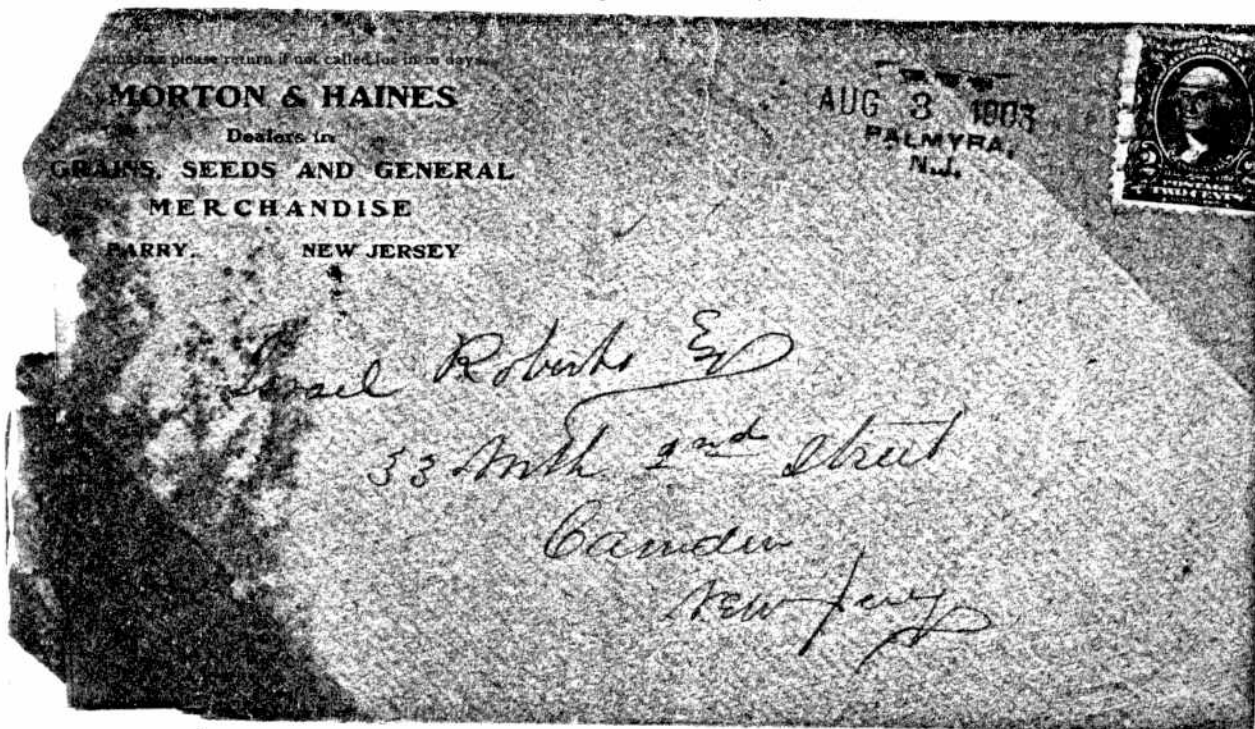 please return if not called for in 10 days.
MORTON & HAINES
Dealers in
GRAINS, SEEDS AND GENERAL
MERCHANDISE
PARRY, NEW JERSEY
AUG 3 1903
PALMYRA,
N.J.
TWO CENTS
Israel Roberts Esq
33 North 2nd Street
Camden
New Jersey